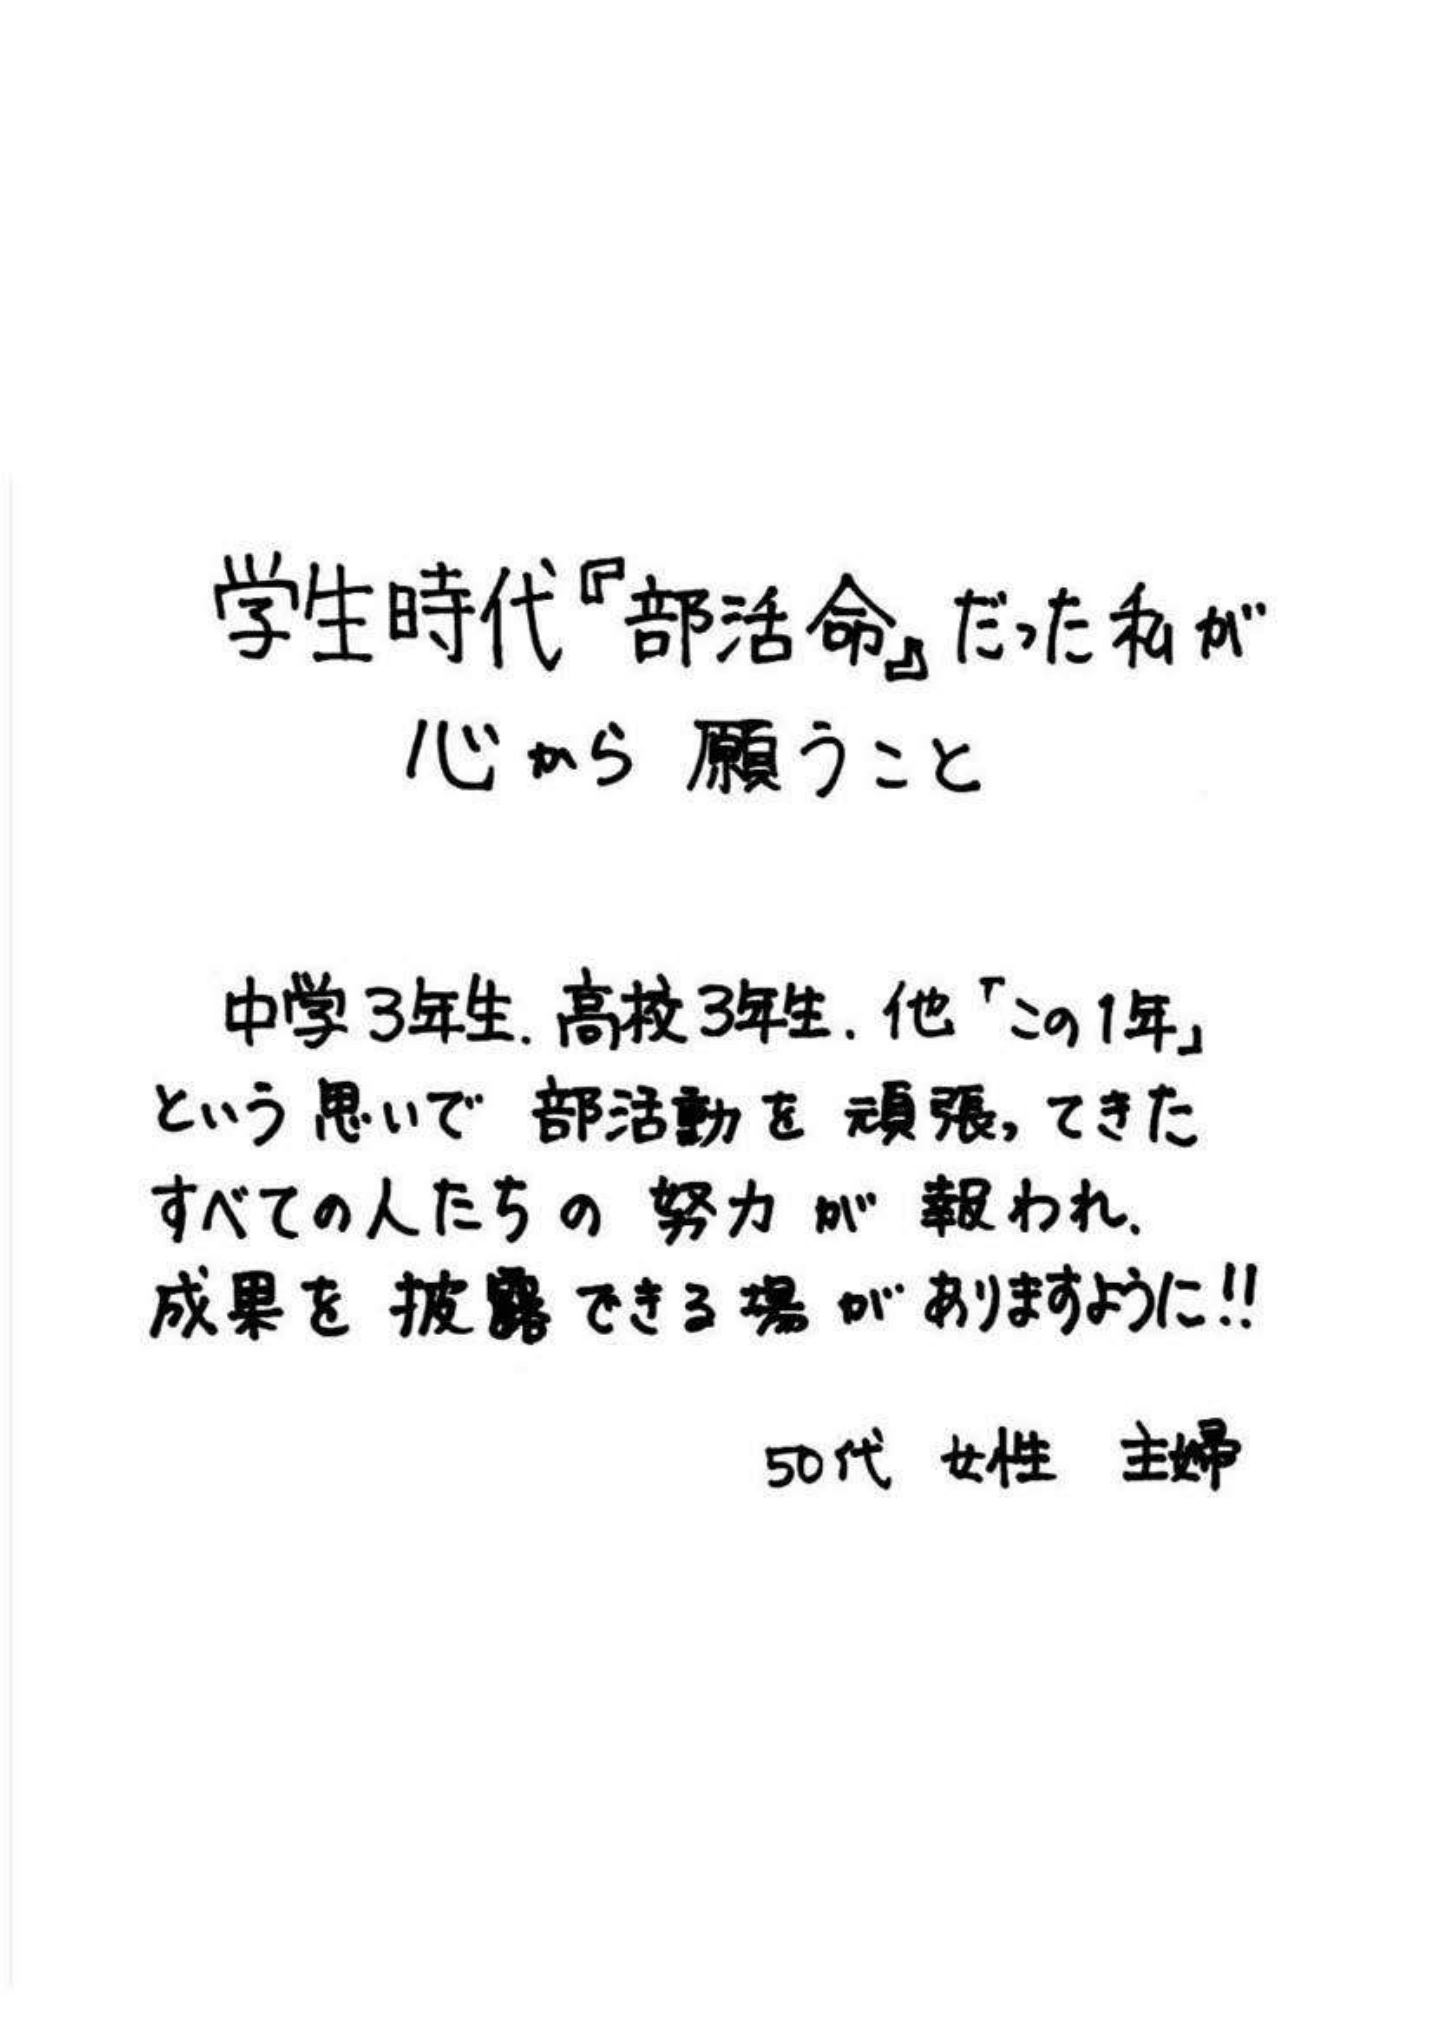 学生時代『部活命』だった私が
心から 願うこと
中学3年生、高校3年生、他「この1年」
という思いで 部活動を 頑張ってきた
すべての人たちの 努力が 報われ、
成果を 披露できる場が ありますように!!
50代 女性 主婦